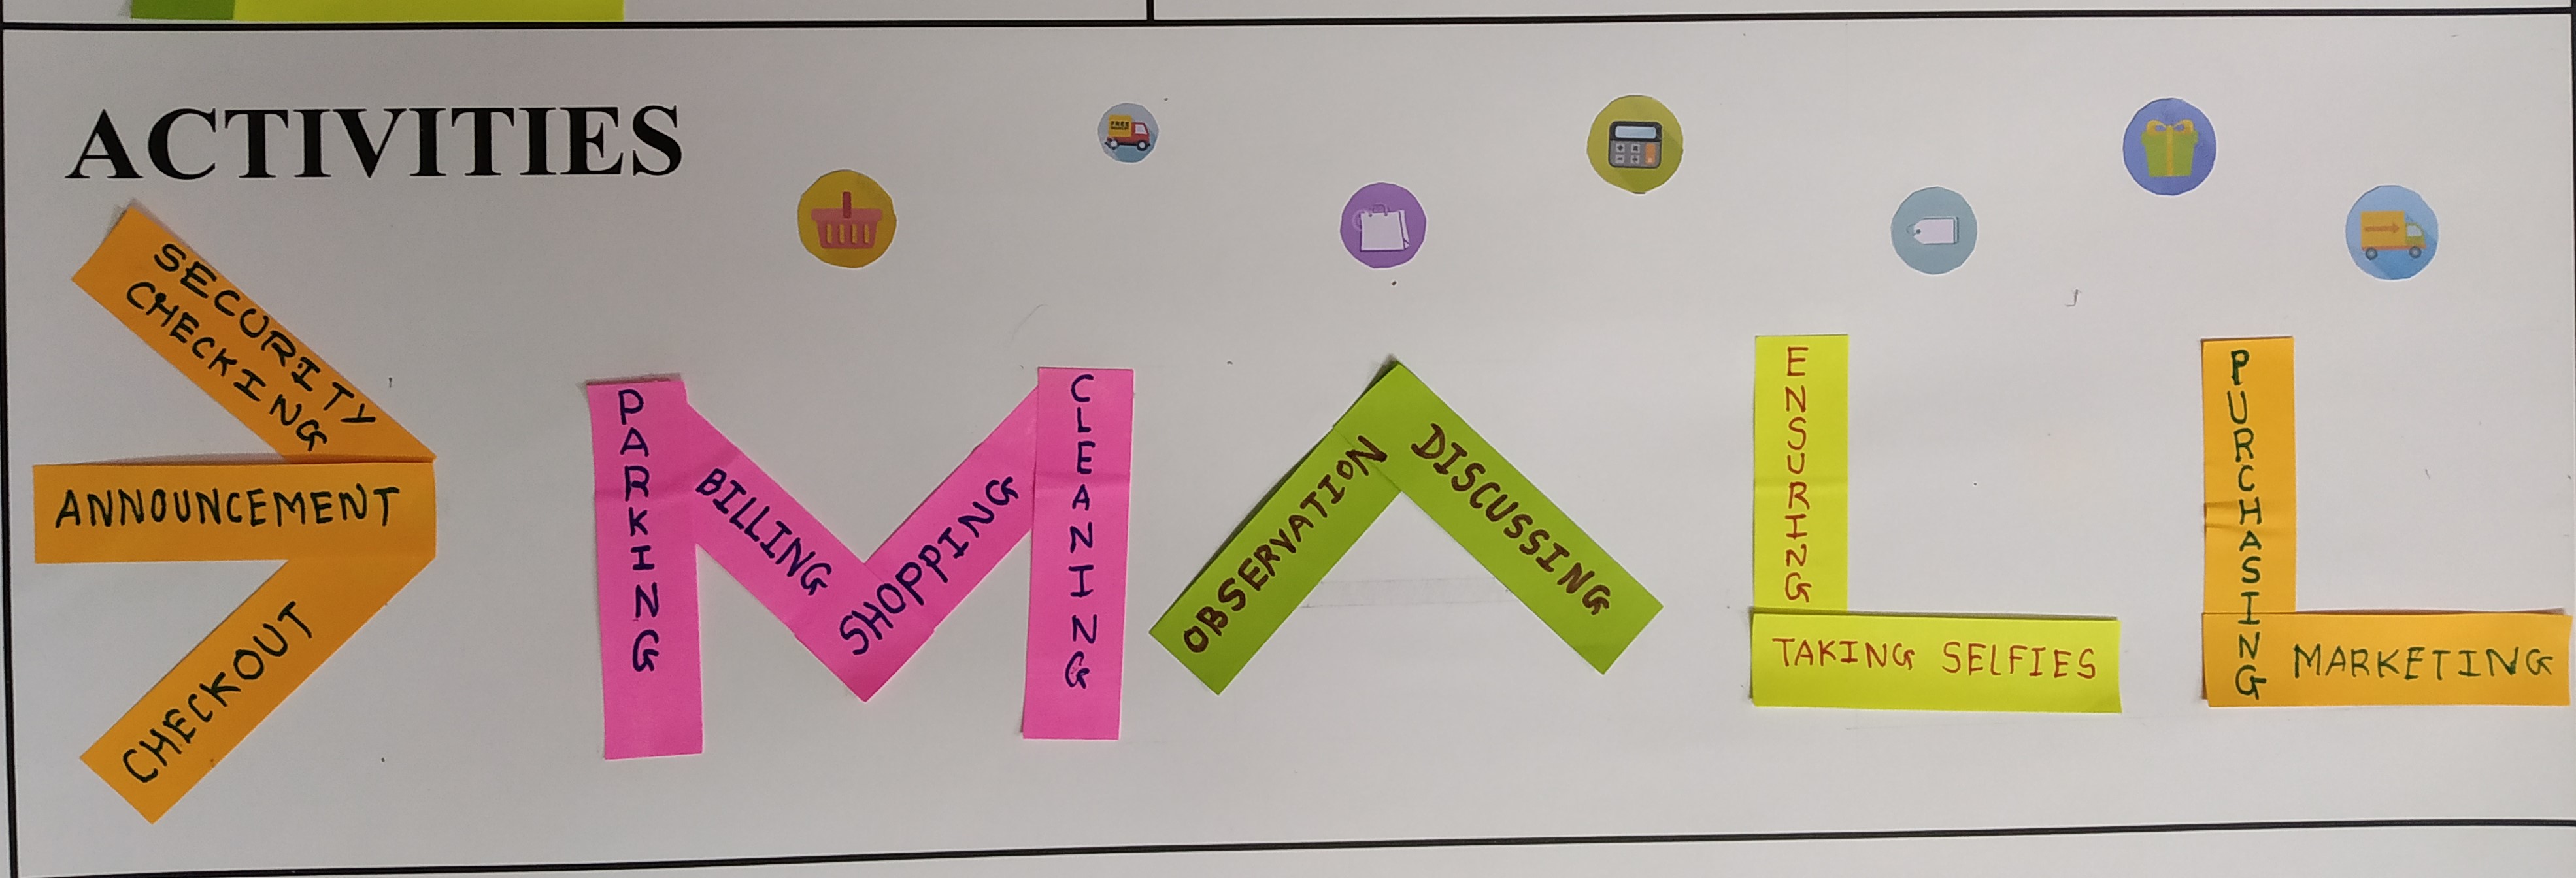 ACTIVITIES
FREE
SECURITY
CHECKING
ANNOUNCEMENT
CHECKOUT
PARKING
BILLING
SHOPPING
CLEANING
OBSERVATION
DISCUSSING
ENSURING
TAKING SELFIES
PURCHASING
MARKETING